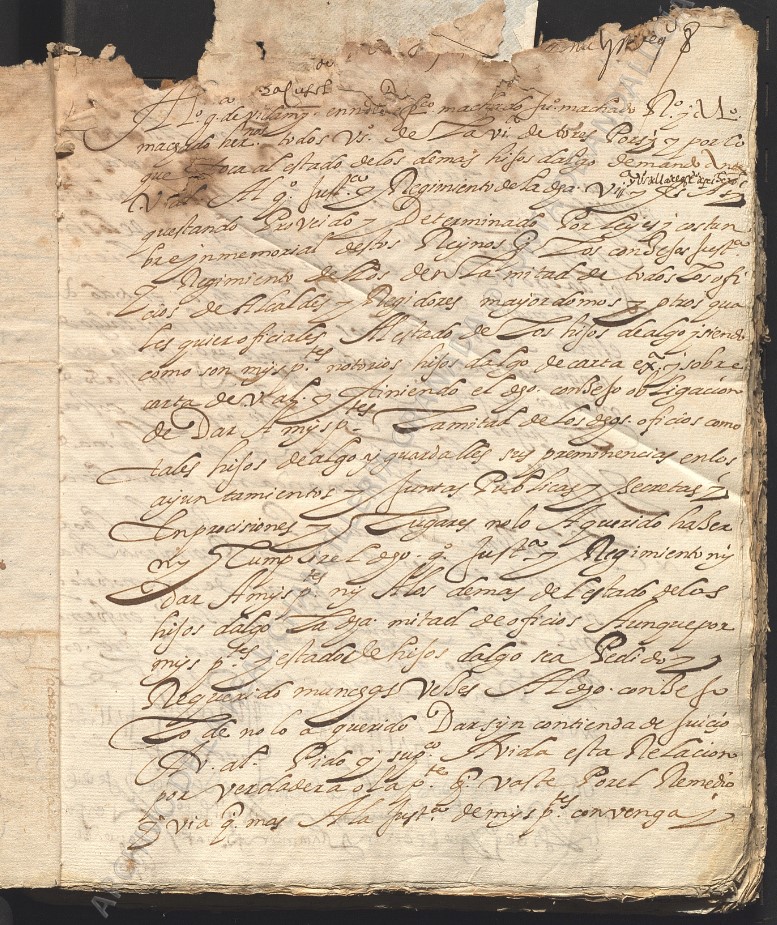 Al.º g. de Villam.ª en nō de fr.co machado Ju.º machado
machado her.nos todos Vs.º de La vi.ª de tores y por lo
que toca al estado de los demas hijos dalgo demando Ante
V. al. Al q.º Just.ª y Regimiento de la dha Vi.ª
questando Proveido y Determinado Por Leyes i costun
bre ynmemorial destos Reynos q̄ Los consejos Just.ª
y Regimiento de llos den La mitad de todos los ofi
cios de Alcaldes y Regidores mayordomos y otros qua
les quier oficiales Al estado de Los hijos de algo y siendo
como son mys p.tes notorios hijos dalgo de carta ex.ª y sobre
carta de V. al. y tiniendo el dho. consejo obligacion
de Dar A mys p.tes La mitad de los dhos. oficios como
tales hijos de algo y guardalles sus preminencias en los
ayuntamientos y Juntas Publicas y secretas y
En procisiones y Lugares no lo A querido haser
ny Cumplir el dho. q.º Just.ª y Regimiento ny
Dar A mys p.tes ny A los demas del estado de los
hijos dalgo La dha. mitad de oficios Aunque por
mys p.tes y estado de hijos dalgo sea Pedido y
Requerido munchas veses Al dho. consejo
Lo de no lo a querido Dar syn contienda de Juicio
A V. al. Pido y sup.co Avida esta Relacion
por verdadera o la p.te q̄ vaste Por el Remedio
y via q̄ mas A la Just.ª de mys p.tes convenga y